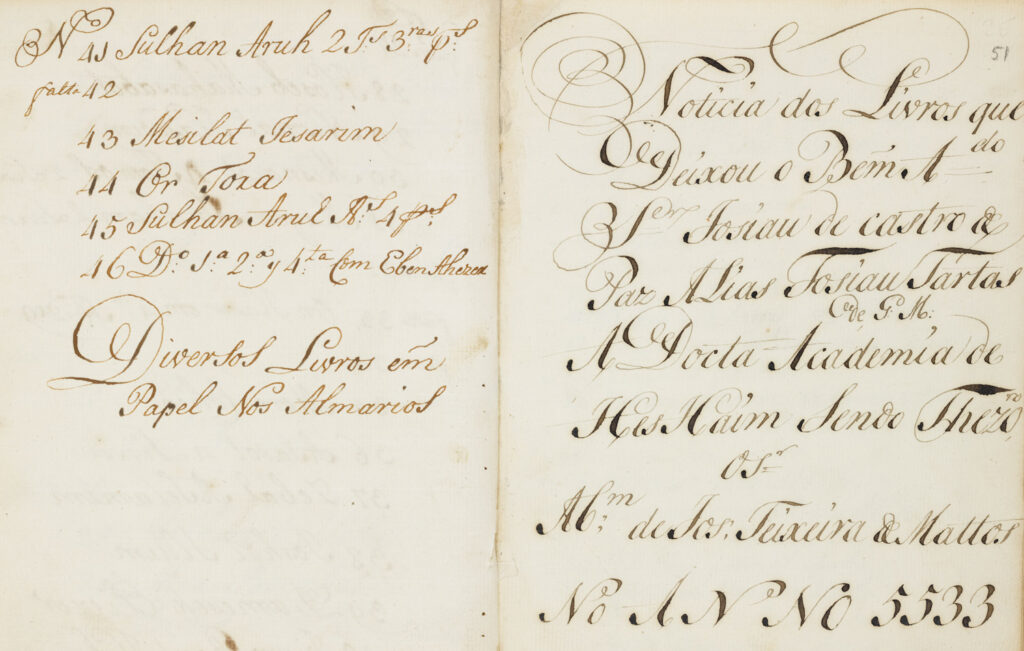 No 41 Sulhan Aruh 2 Ts 3ras ps
falta 42
43 Mesilat Jesarim
44 Or Tora
45 Sulhan Aruh As 4 ps
46 Do 1a 2a y 4ta Com Eben Ahezer
Diversos Livros em
Papel Nos Almarios
51
Noticia dos Livros que
Deixou o Bem Ado
Sr Josiau de castro de
Paz ALias Josiau Tartas
de G. M:
A Docta Academia de
Hes Haim Sendo Thezoro
o Sr
Abm de Jos: Teixeira de Mattos
No ANNO 5533